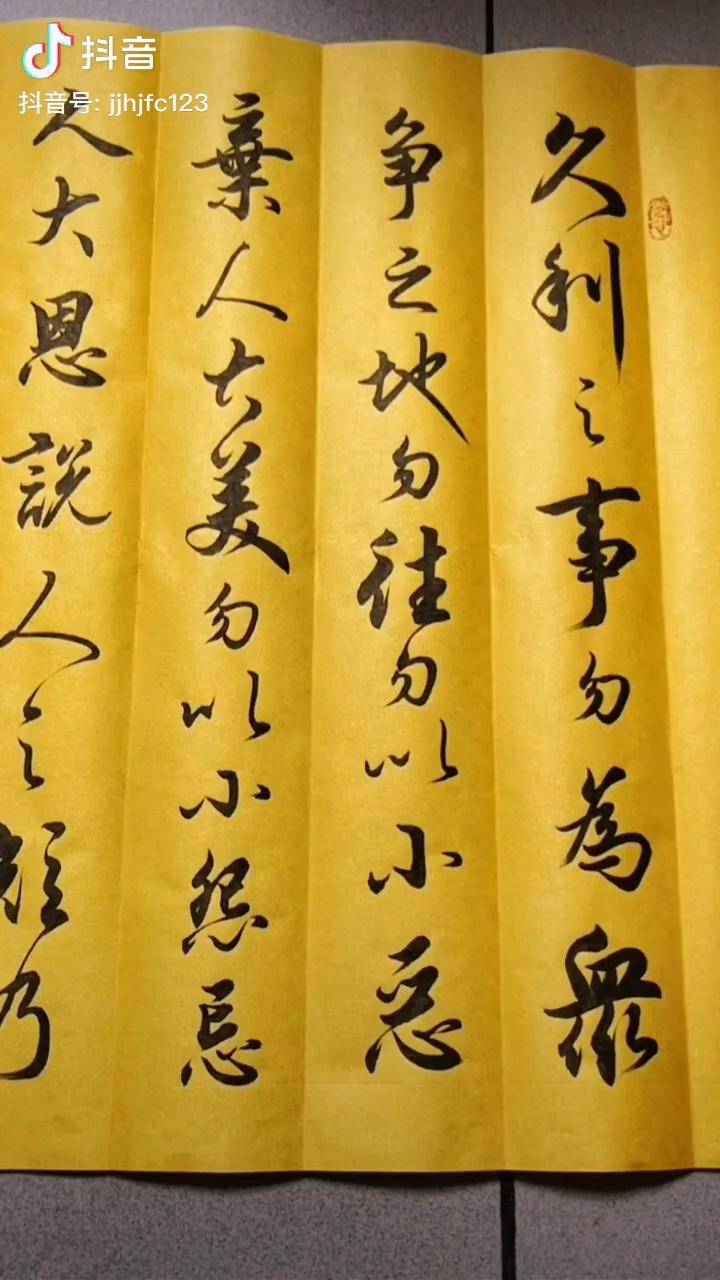 抖音
抖音号: jjhjfc123
久利之事勿為衆
争之地勿往勿以小惡
棄人大美勿以小怨忌
人大恩說人之短乃